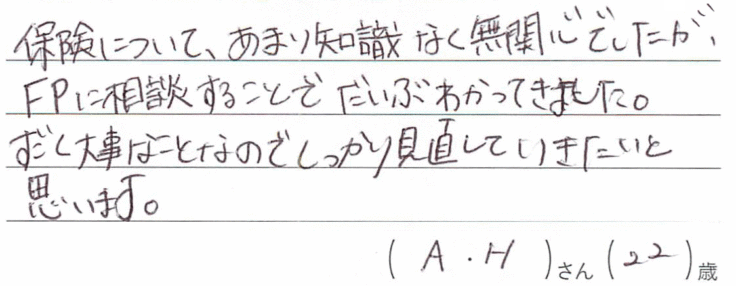 保険について、あまり知識なく無関心でしたが、
FPに相談することでだいぶわかってきました。
すごく大事なことなのでしっかり見直していきたいと
思います。
(A.H)さん(22)歳